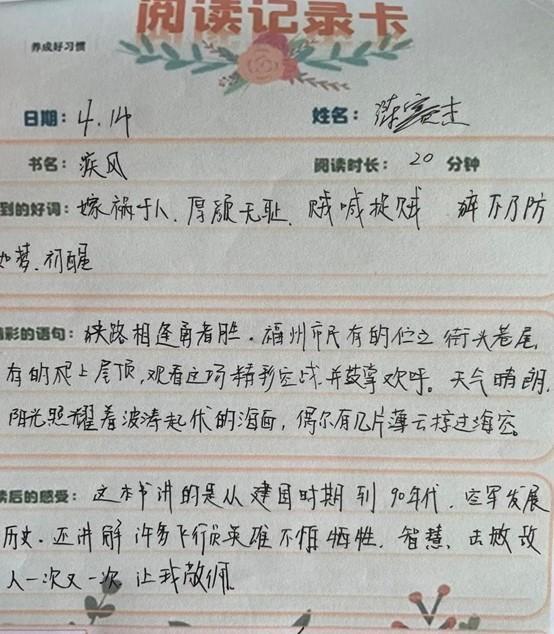 阅读记录卡
养成好习惯
日期：4.14 姓名：陈
书名：疾风 阅读时长：20 分钟
到的好词：嫁祸于人、厚颜无耻、贼喊捉贼 猝不及防
如梦初醒
精彩的语句：狭路相逢勇者胜。福州市民有的伫立街头巷尾，
有的爬上屋顶，观看这场精彩空战，并鼓掌欢呼。天气晴朗，
阳光照耀着波涛起伏的海面，偶尔有几片薄云掠过海空。
读后的感受：这本书讲的是从建国时期到90年代，空军发展
历史。还讲解许多飞行员英雄不惧牺牲，智慧，击败敌
人一次又一次，让我敬佩。